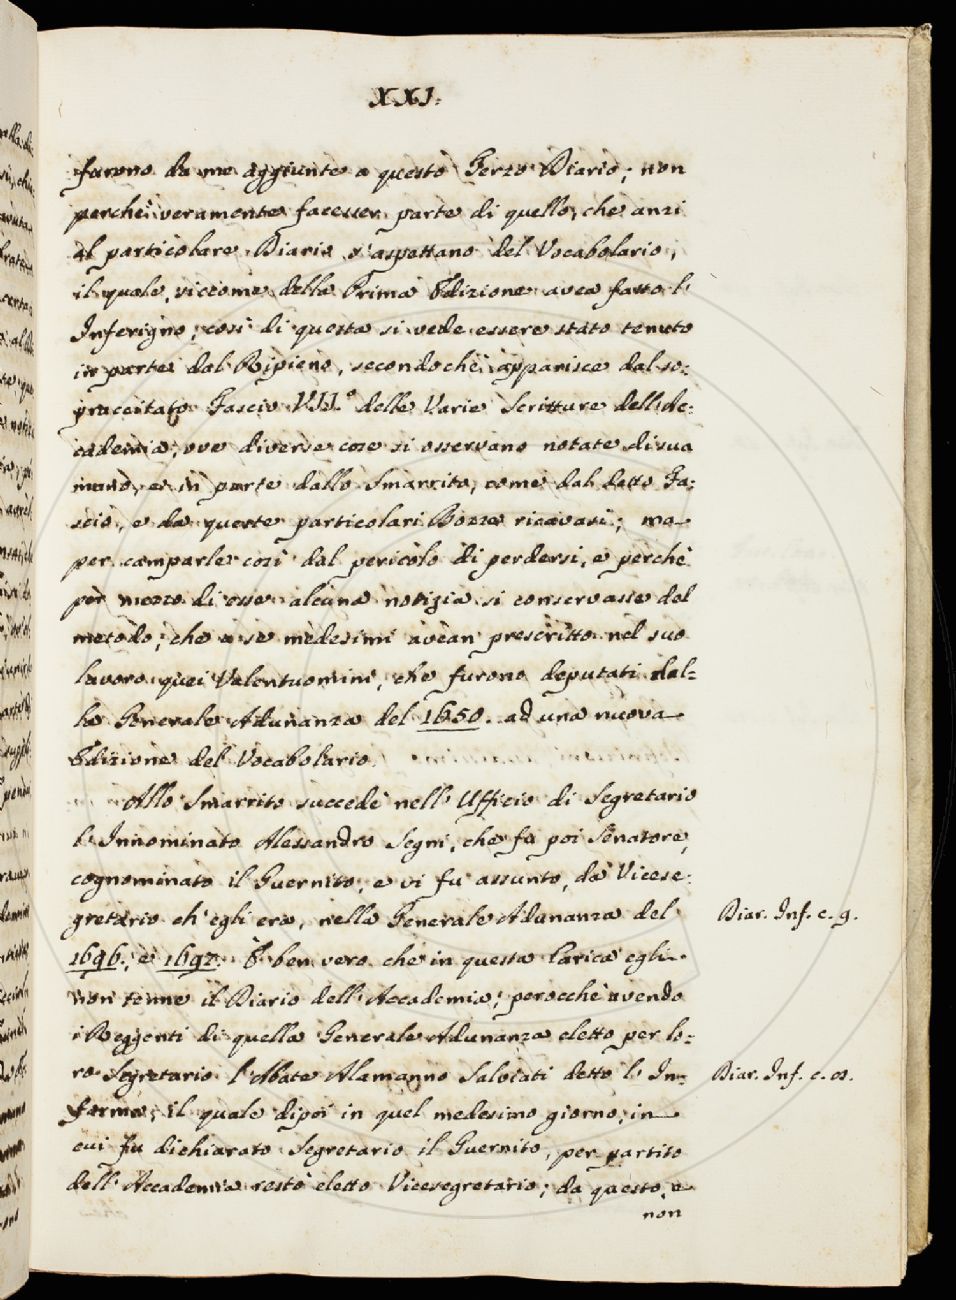 XXI.
furono da me aggiunte a questo Terzo Diario; non
perchè veramente facesser parte di quello, che anzi
al particolare Diario s'aspettano del Vocabolario,
il quale, siccome della Prima Edizione avea fatto l'
Inferigno, così di questa si vede essere stato tenuto
in parte dal Ripieno, secondochè apparisce dal so=
praccitato Fascio VII.º delle Varie Scritture dell'Ac=
cademia, ove diverse cose si osservano notate di sua
mano, e in parte dallo Smarrito, come dal detto Fa=
scio, e da queste particolari Bozze ricavasi; ma
per camparle così dal pericolo di perdersi, e perchè
per mezzo di esse alcuna notizia si conservasse del
metodo, che a se medesimi avean prescritto nel suo
lavoro quei Valentuomini, che furono deputati dal=
la Generale Adunanza del 1650. ad una nuova
Edizione del Vocabolario.
Allo Smarrito succedè nell'Uffizio di Segretario
l'Innominato Alessandro Segni, che fu poi Senatore,
cognominato il Guernito, e vi fu assunto, da Vicese=
gretario ch'egli era, nella Generale Adunanza del
1696., e 1697. È ben vero che in questa Carica egli
non tenne il Diario dell'Accademia; perocchè avendo
i Reggenti di quella Generale Adunanza eletto per lo=
ro Segretario l'Abate Alamanno Salviati detto l'In=
forme, il quale dipoi in quel medesimo giorno, in
cui fu dichiarato Segretario il Guernito, per partito
dell'Accademia restò eletto Vicesegretario; da questo, e
non
Diar. Inf. c. 9.
Diar. Inf. c.